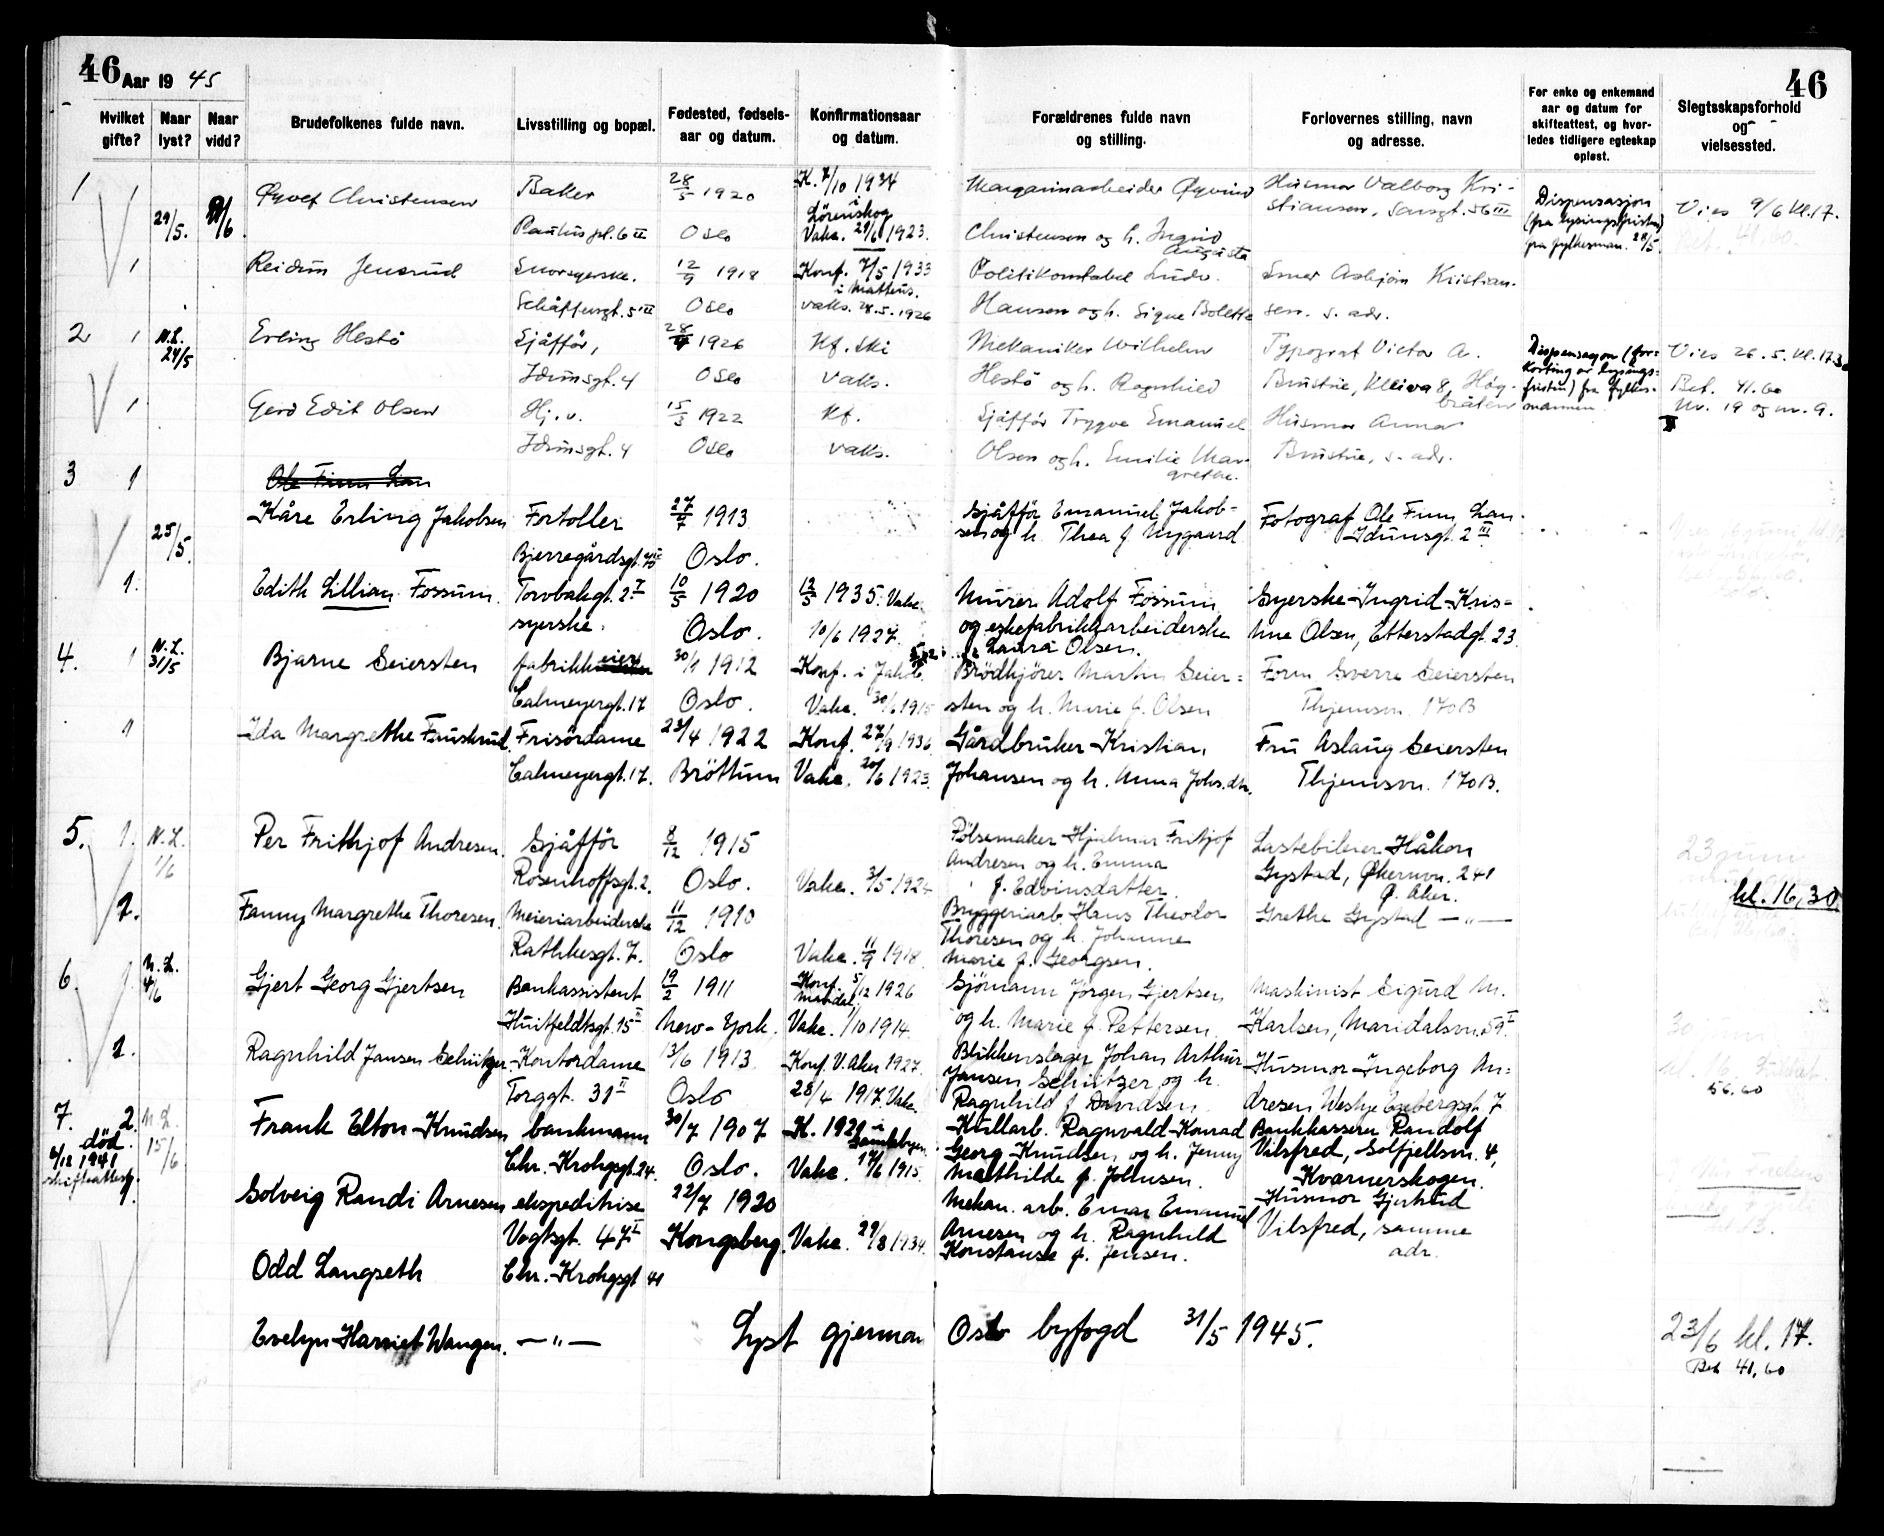 46 Aar 19 45 46
Hvilket gifte? Naar lyst? Naar vidd? Brudefolkenes fulde navn. Livsstilling og bopæl. Fødested, fødsels- aar og datum. Konfirmationsaar og datum. Forældrenes fulde navn og stilling. Forlovernes stilling, navn og adresse. For enke og enkemand aar og datum for skifteattest, og hvor- ledes tidligere egteskap opløst. Slegtsskapsforhold og vielsessted.
1 1 Øyvef Christensen Baker 28/5 1920 K. 7/10 1934 i Margarinarbeider Øyvind Husmor Valborg Kri- Dispensasjon
29/5. 9/6. Paulus pl. 6 III Oslo Lørenskog Vaks. 29/6 1923. Christensen og h. Ingrid Augusta stiansen, 56 III (fra lysingsfristen) fra fylkesman. 28/5. Vies 9/6 kl. 17.
1 Reidun Jensrud Snorsyerske. 12/9 1918 Konf. 7/5 1933 i Matteus. Politikonstabel Ludv. Asbjørn Kristian-
5 III Oslo vaks. 24.5.1926 Hansen og h. Signe Bolette sen. s. adr.
2 1 N.L. 24/5 Erling Hestö Sjåffør, 28/4 1926 Kf. Ski Mekaniker Wilhelm Typograf Victor A. Dispensasjon (for- Vies 26.5. kl. 17.30
Idunsgt. 4 Oslo vaks. Hestö og h. Ragnhild Brustrie, Kleiva 8, Høy- bråten korting av lysings- fristen) fra fylkes- Bet. 41.60
1 Gerd Edit Olsen Hj. v. 15/3 1922 Kf. Sjåffør Trygve Emanuel Husmor Anna mannen. Nr. 19 og nr. 9.
Idunsgt. 4 Oslo vaks. Olsen og h. Emilie Mar- grethe. Brustrie, s. adr.
3 1 Ole Finn Lan
Kåre Erling Jakobsen Fortoller 27/7 1913 Sjåffør Emanuel Jakob- Fotograf Ole Finn Lan.
25/5. Bjerregårdsgt. Oslo. sen og h. Thea f. Nygaard Idunsgt. 2 III
1. Edith Lillian Fossum. Torvbakgt. 2 I 10/5 1920 12/5 1935. Vaks. Murer Adolf Fossum Syerske Ingrid Kris-
syerske. Oslo. 10/6 1927. og eskefabrikkarbeiderske Laura Olsen. tine Olsen, Etterstadgt. 23.
4. 1 N.L. 31/5 Bjarne Seiersten fabrikkeier 30/1 1912 Konf. i Jakob. Brödkjører Martin Seier- Form. Sverre Seiersten
Calmeyergt. 17 Oslo. Vaks. 30/6 1915 sten og h. Marie f. Olsen Thjemsvn. 170B
1 Ida Margrethe Fauskrud. Frisördame 23/4 1922 Konf. 27/9 1936. Gårdbruker Kristian Fru Aslaug Seiersten
Calmeyergt. 17. Bröttum Vaks. 20/6 1923. Johansen og h. Anna Johs.dtr. Thjemsvn. 170B.
5. 1. N.L. 1/6 Per Frithjof Andresen. Sjåffør 8/12 1915 Pölsemaker Hjalmar Fritjof Lastebileier Håkon 23 juni
Rosenhoffsgt. 2. Oslo. Vaks. 3/5 1924 Andresen og h. Emma f. Edvinsdatter. Gystad, Økernvn. 241 Ø. Aker.
2. Fanny Margrethe Thoresen. Meieriarbeiderske 11/12 1910 Bryggeriarb. Hans Theodor Grethe Gystad — „ — kl. 16,30
Rathkesgt. 7. Oslo Vaks. 11/9 1918. Thoresen og h. Johanne Marie f. Georgsen.
6. 1. N.L. 4/6 Gjert Georg Gjertsen Bankassistent 19/2 1911 Konf. 5/12 1926 Mandal Sjömann Jörgen Gjertsen Maskinist Sigurd M.
Huitfeldtsgt. 15 II New-York. Vaks. 1/10 1914. og h. Marie f. Pettersen. Karlsen, Maridalsvn. 59 I 30
2. Ragnhild Jansen Schützer. Kontordame 13/6 1913 Konf. V. Aker 1927. Blikkenslager Johan Arthur Husmor Ingeborg An- kl. 16
Torggt. 31 II Oslo 28/4 1917. Vaks. Jansen Schützer og h. Ragnhild f. Arvidsen dresen Vestye Egebergsgt. 7 56.60
7. 2. N.L. 15/6 Frank Elton Knudsen bankmann 30/7 1907 K. 1921 i Kullarb. Ragnvald Konrad Bankkasserer Randolf
død. 6/12 1941 skifteattest Chr. Krohgsgt. 24. Oslo. Vaks. 17/6 1915. Georg Knudsen og h. Jenny Mathilde f. Johnsen. Vilsfred, Solfjellsvn. 4, Kvarnerskogen.
1. Solveig Randi Arnesen ekspeditrise 22/7 1920 Mekan. arb. Einar Emanuel Husmor Gjertrud
Vogtsgt. 47 I Kongsberg. Vaks. 29/8 1934. Arnesen og h. Ragnhild Konstanse f. Jensen. Vilsfred, samme adr.
Odd Langseth Chr. Krohgsgt 41
Evelyn Harriet Wangen. — „ — Lyst gjennom Oslo byfogd 31/5 1945. 23/6 kl. 17.
Bet 41,60